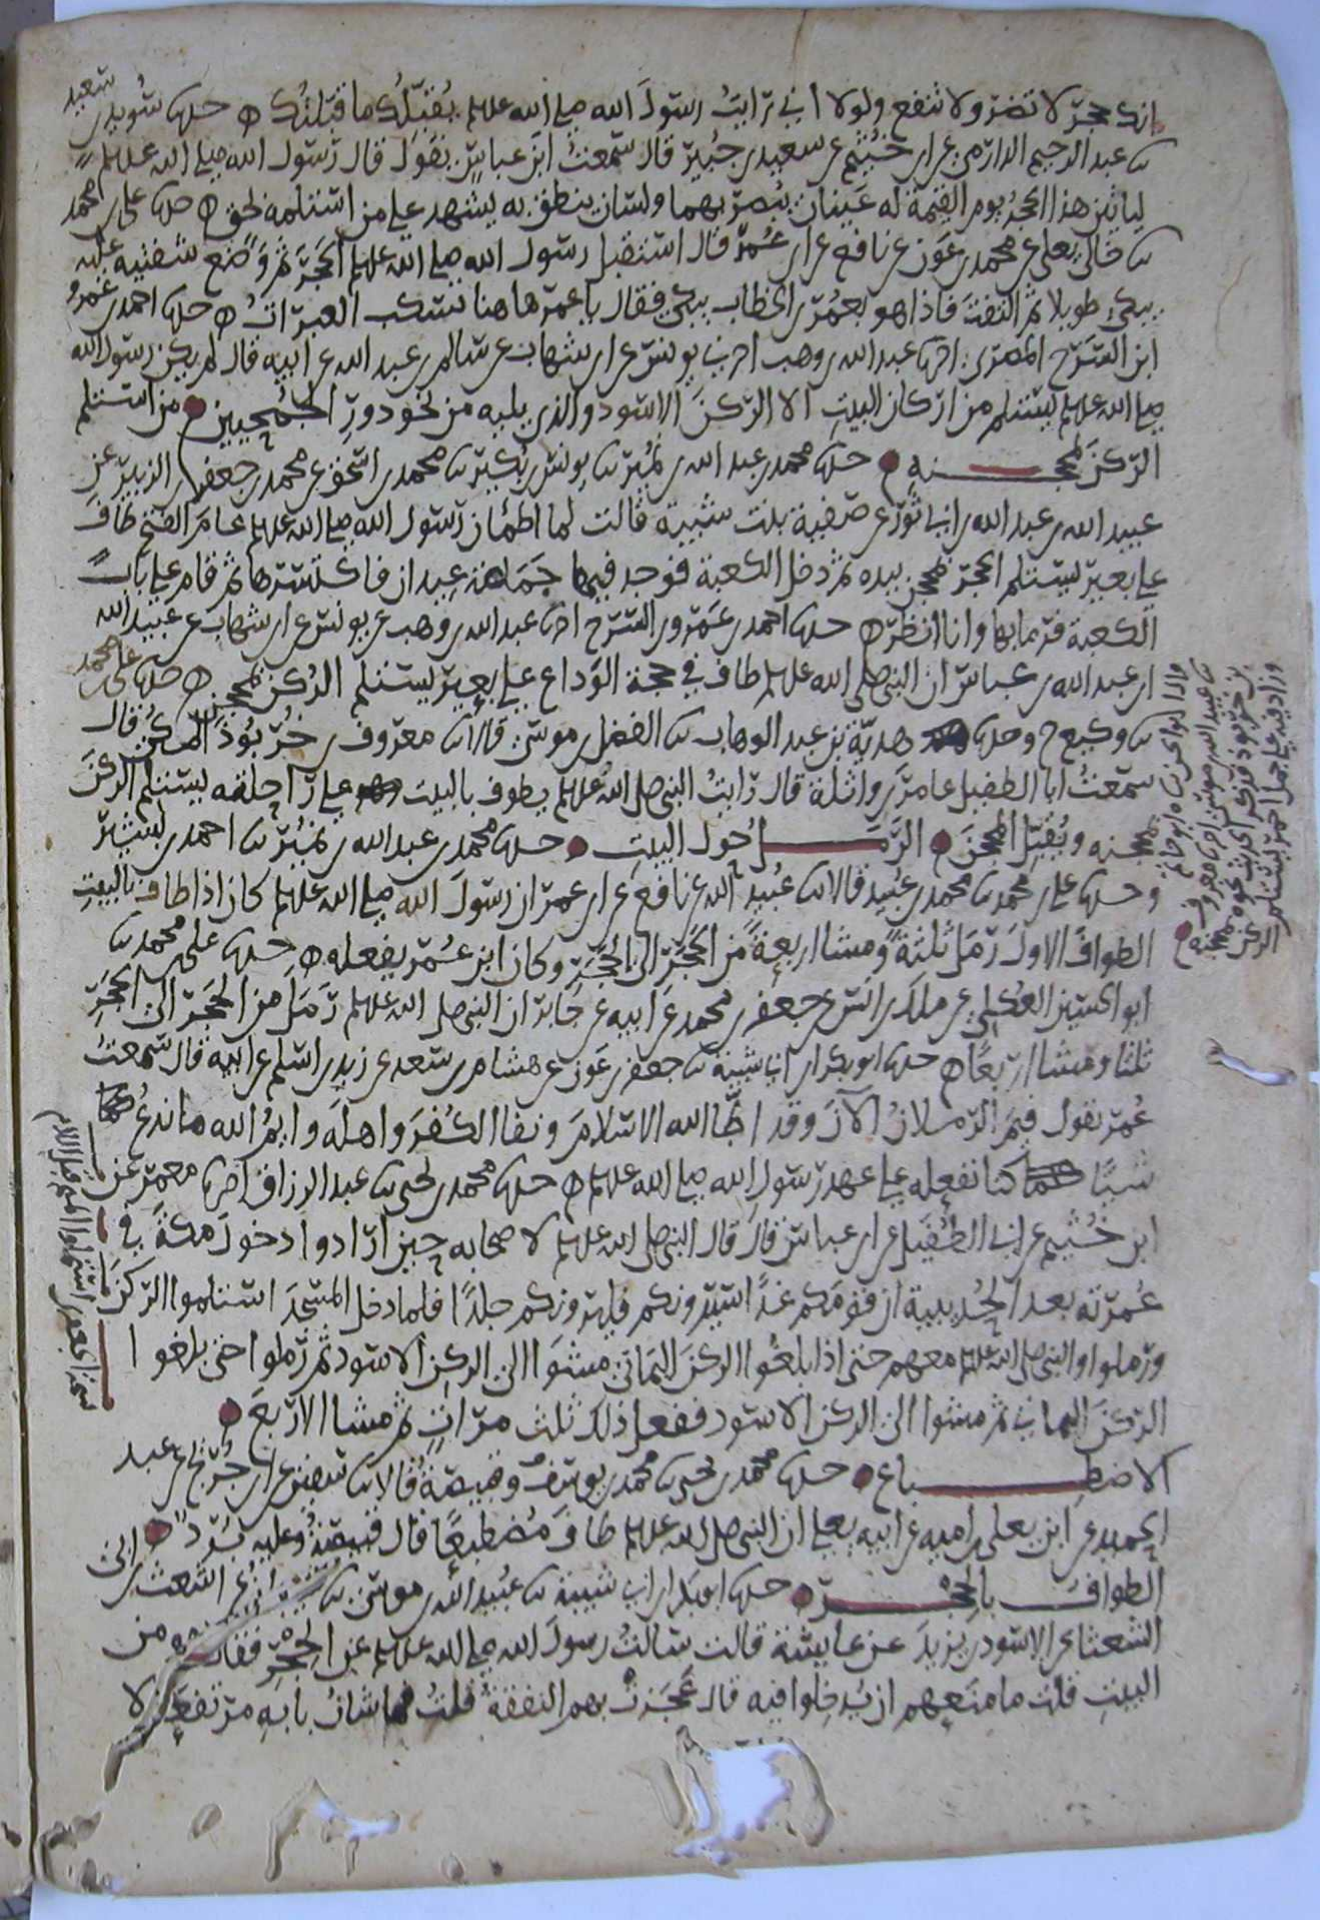 انك حجر لا تضر ولا تنفع ولولا اني رايت رسول الله صلى الله عليه يقبلك ما قبلتك ه حدثنا سويد بن سعيد
ثنا عبد الرحيم الرازي عن ابن خثيم عن سعيد بن جبير قال سمعت ابن عباس يقول قال رسول الله صلى الله عليه
لياتين هذا الحجر يوم القيمة له عينان يبصر بهما ولسان ينطق به يشهد على من استلمه بحق ه حدثنا علي بن محمد
ثنا خالي يعلى عن محمد بن عون عن نافع عن ابن عمر قال استقبل رسول الله صلى الله عليه الحجر ثم وضع شفتيه عليه
يبكي طويلا ثم التفت فاذا هو بعمر بن الخطاب يبكي فقال يا عمر هاهنا تسكب العبرات ه حدثنا احمد بن عمرو
ابن السرح المصري اخبرنا عبد الله بن وهب اخبرني يونس عن ابن شهاب عن سالم بن عبد الله عن ابيه قال لم يكن رسول الله
صلى الله عليه يستلم من اركان البيت الا الركن الاسود والذي يليه من نحو دور الجمحيين من استلم
الركن بمحجنه حدثنا محمد بن عبد الله بن نمير ثنا يونس بن بكير ثنا محمد بن اسحق عن محمد بن جعفر بن الزبير عن
عبيد الله بن عبد الله بن ابي ثور عن صفية بنت شيبة قالت لما اطمأن رسول الله صلى الله عليه عام الفتح طاف
على بعير يستلم الحجر بمحجن بيده ثم دخل الكعبة فوجد فيها حمامة عيدان فاكتسرها ثم قام على باب
الكعبة فرمى بها وانا انظر ه حدثنا احمد بن عمرو بن السرح اخبرنا عبد الله بن وهب عن يونس عن ابن شهاب عن عبيد الله
ابن عبد الله بن عباس ان النبي صلى الله عليه طاف في حجة الوداع على بعير يستلم الركن بمحجن ه حدثنا علي بن محمد
ثنا وكيع ح وحدثنا هدية بن عبد الوهاب ثنا الفضل بن موسى قالا ثنا معروف بن خربوذ المكي قال
سمعت ابا الطفيل عامر بن واثلة قال رايت النبي صلى الله عليه يطوف بالبيت على راحلته يستلم الركن
بمحجنه ويقبل المحجن الرمل حول البيت حدثنا محمد بن عبد الله بن نمير ثنا احمد بن بشير
وحدثنا علي بن محمد ثنا محمد بن عبيد قالا ثنا عبيد الله عن نافع عن ابن عمر ان رسول الله صلى الله عليه كان اذا طاف بالبيت
الطواف الاول رمل ثلثة ومشا اربعة من الحجر الى الحجر وكان ابن عمر يفعله ه حدثنا علي بن محمد ثنا
ابو الحسين العكلي عن ملك بن انس عن جعفر بن محمد عن ابيه عن جابر ان النبي صلى الله عليه رمل من الحجر الى الحجر
ثلثا ومشا اربعا ه حدثنا ابو بكر بن ابي شيبة ثنا جعفر بن عون عن هشام بن سعد عن زيد بن اسلم عن ابيه قال سمعت
عمر يقول فيم الرملان الآن وقد اطّا الله الاسلام ونفا الكفر واهله وايم الله ما ندع
شيئا كنا نفعله على عهد رسول الله صلى الله عليه ه حدثنا محمد بن يحيى ثنا عبد الرزاق اخبرنا معمر عن
ابن خثيم عن ابي الطفيل عن ابن عباس قال قال النبي صلى الله عليه لاصحابه حين ارادوا دخول مكة في
عمرته بعد الحديبية ان قومكم غدا سيرونكم فليرونكم جلدا فلما دخل المسجد استلموا الركن
ورملوا والنبي صلى الله عليه معهم حتى اذا بلغوا الركن اليماني مشوا الى الركن الاسود ثم رملوا حتى بلغوا
الركن اليماني ثم مشوا الى الركن الاسود ففعل ذلك ثلث مرات ثم مشا الاربع
الاضطباع حدثنا محمد بن يحيى ثنا محمد بن يوسف وقبيصة قالا ثنا سفين عن ابن جريج عن عبد
الحميد عن ابن يعلى بن اميه عن ابيه يعلى ان النبي صلى الله عليه طاف مضطبعا قال قبيصة وعليه برد
الطواف بالحجر حدثنا ابو بكر بن ابي شيبة ثنا عبيد الله بن موسى ثنا اشعث بن ابي
الشعثا عن الاسود بن يزيد عن عايشة قالت سالت رسول الله صلى الله عليه عن الحجر فقال من
البيت قلت ما منعهم ان يدخلوا فيه قال عجزت بهم النفقة قلت فما شان بابه مرتفعا لا